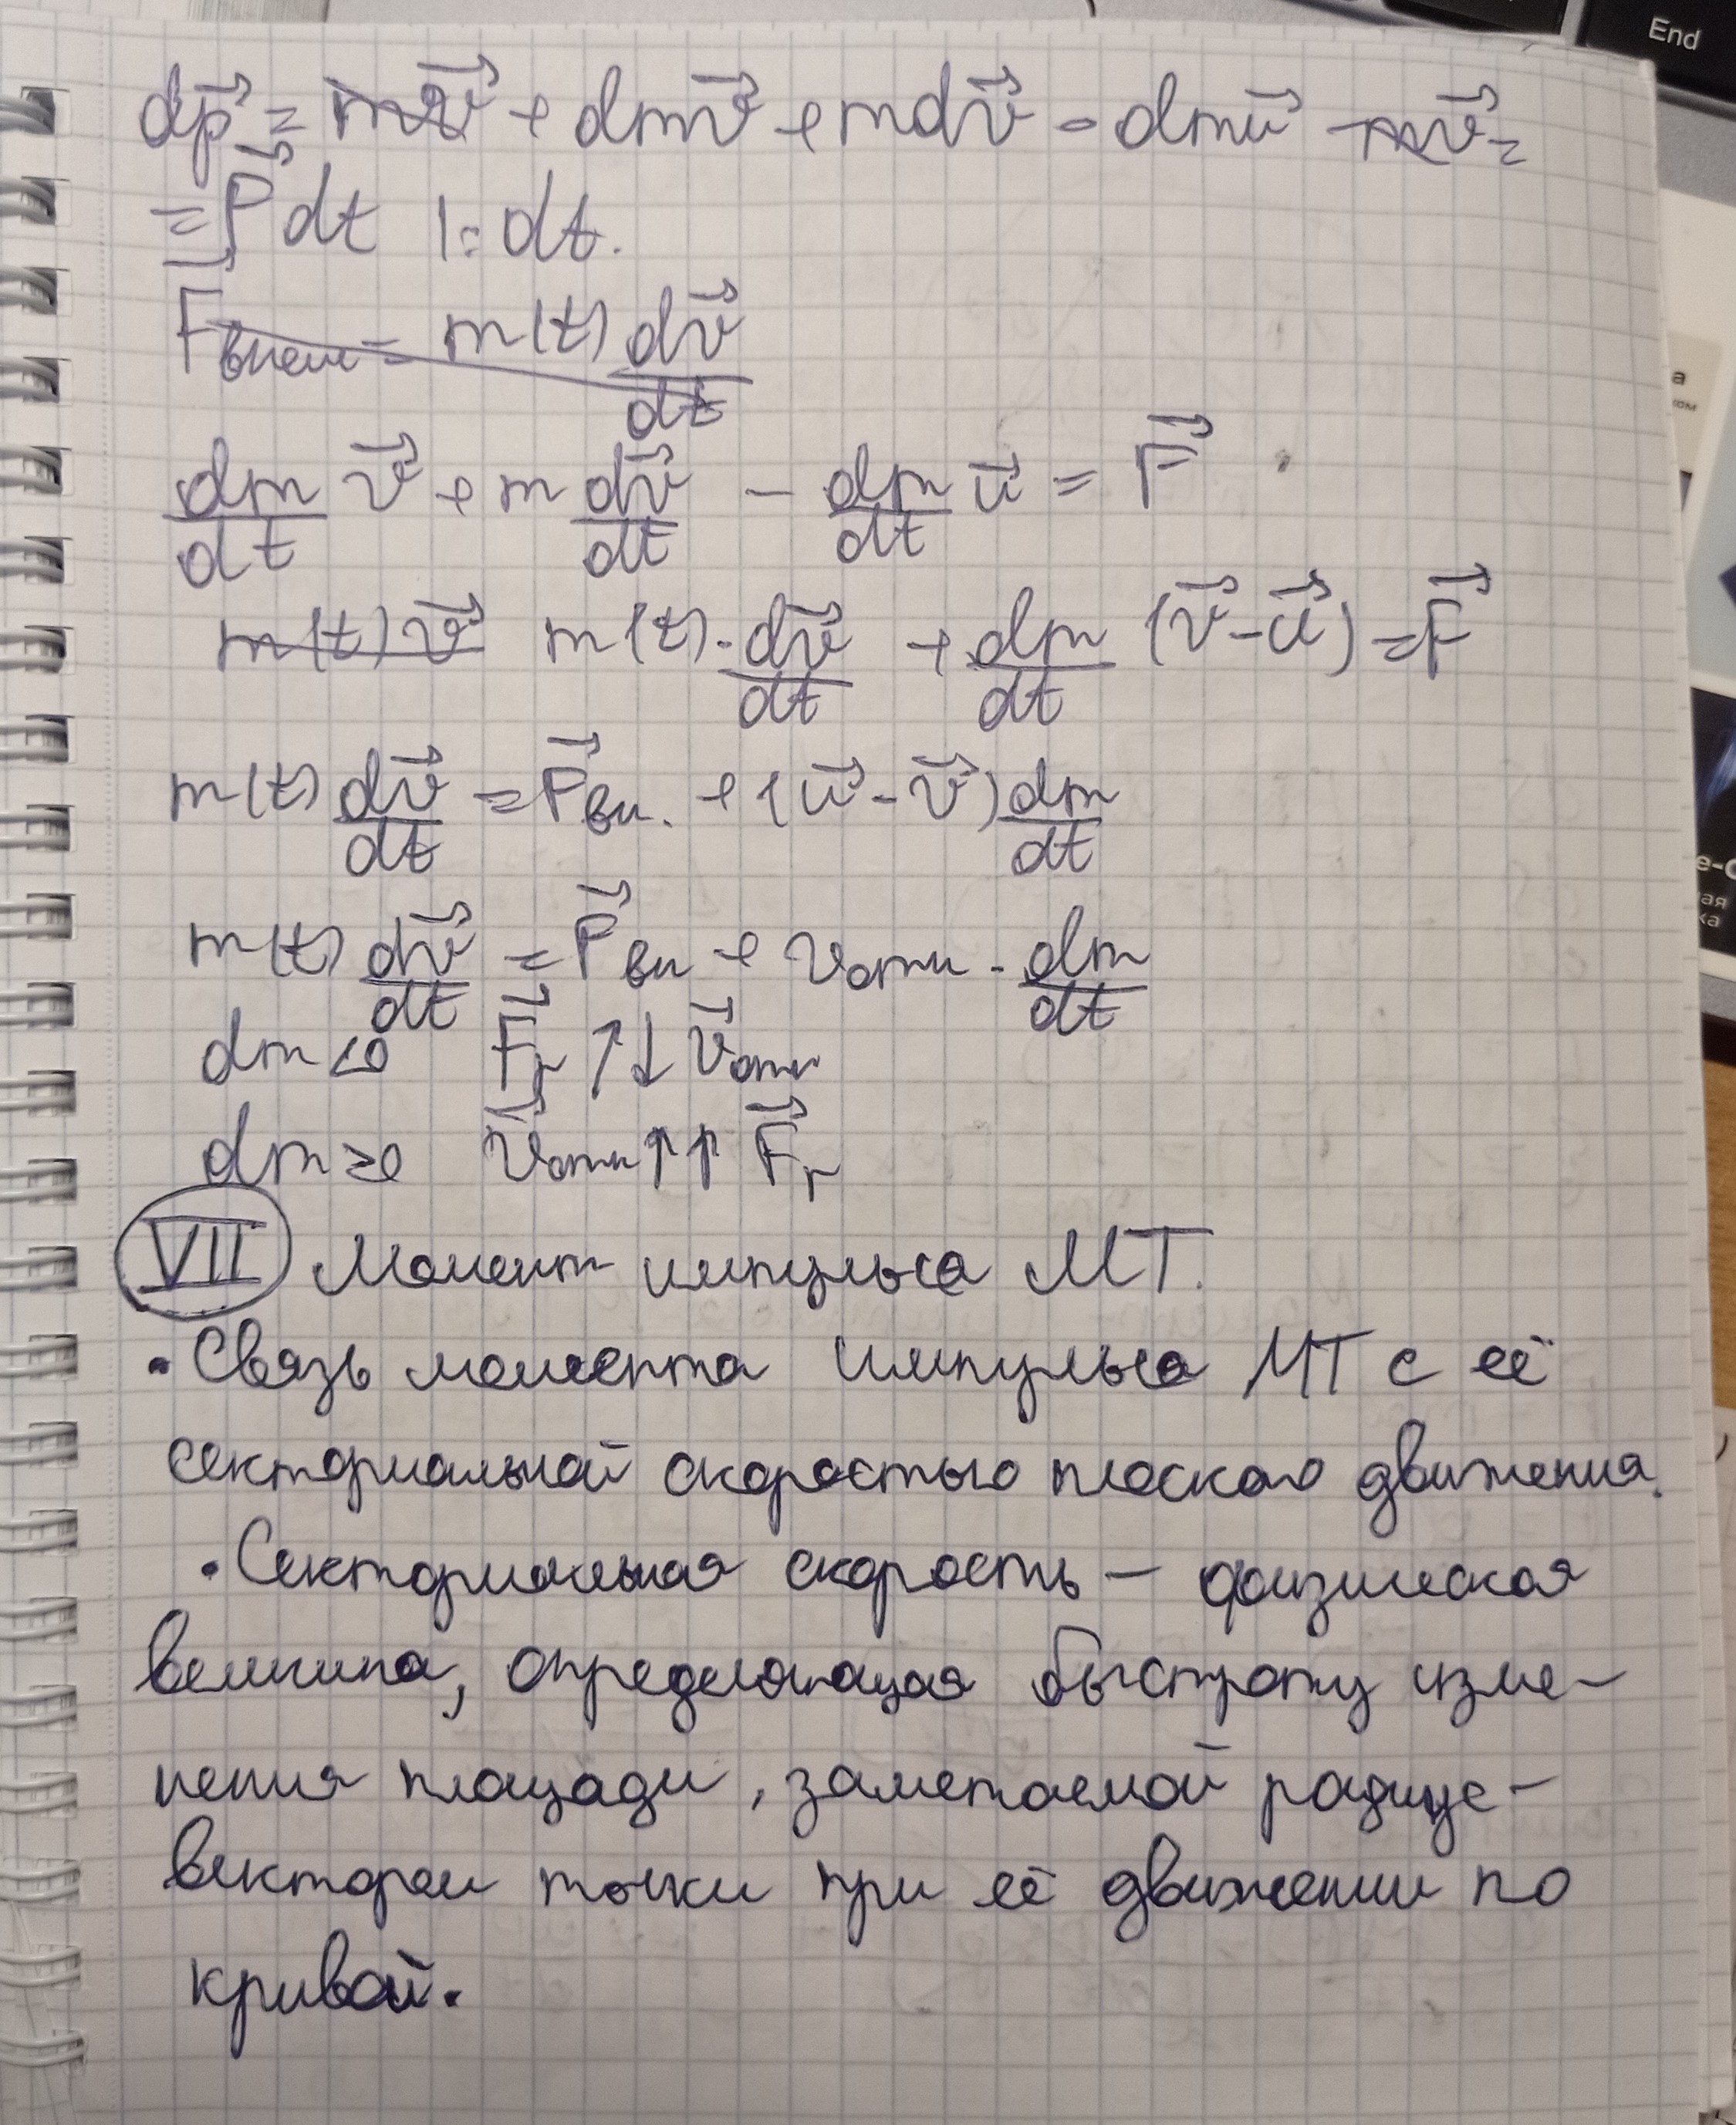 End
dp⃗ = mv⃗ + dmv⃗ + mdv⃗ - dmu⃗ - mv⃗ =
= F⃗ dt |: dt.
F⃗внеш = m(t) dv⃗/dt
dm/dt v⃗ + m dv⃗/dt - dm/dt u⃗ = F⃗
m(t)v⃗ m(t)·dv⃗/dt + dm/dt (v⃗-u⃗) = F⃗
m(t) dv⃗/dt = F⃗вн. + (u⃗-v⃗) dm/dt
m(t) dv⃗/dt = F⃗вн + vотн · dm/dt
dm<0 F⃗r ↑↓ v⃗отн
dm≥0 v⃗отн ↑↑ F⃗r
VII Момент импульса МТ.
• Связь момента импульса МТ с её
секториальной скоростью плоского движения.
• Секториальная скорость – физическая
величина, определяющая быстроту изме-
нения площади, заметаемой радиус-
вектором точки при её движении по
кривой.